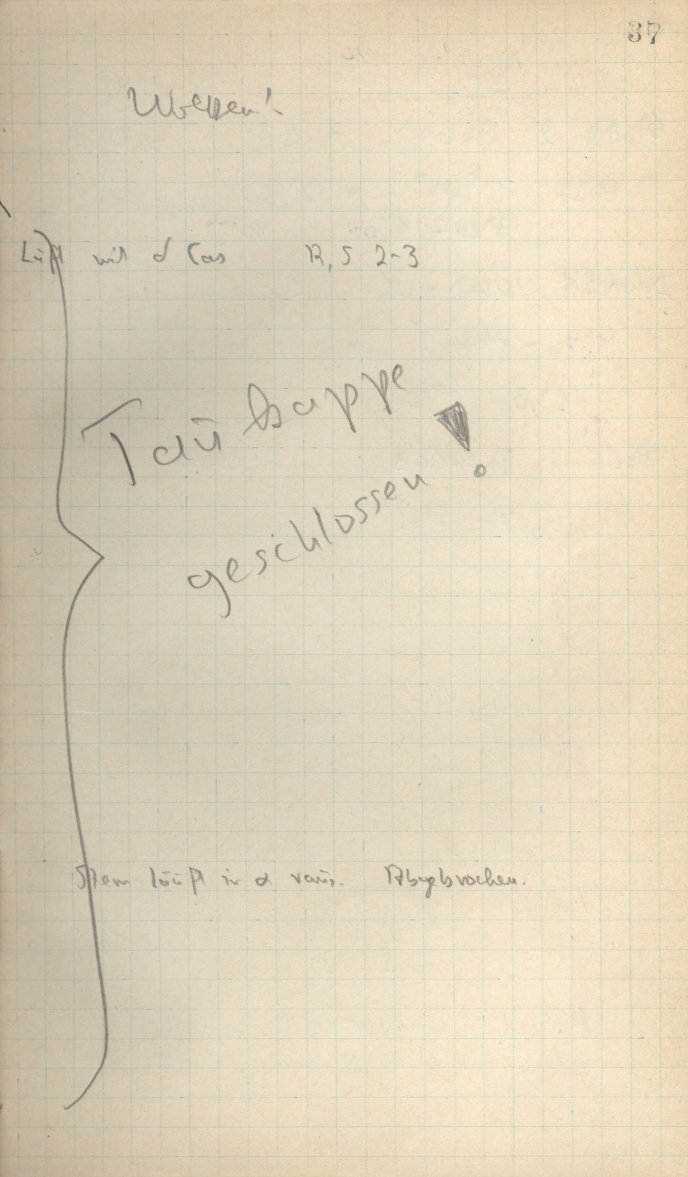 37
Wolken!
Läuft mit δ Cas R, S 2-3
Taukappe
geschlossen!
Stern läuft in α raus. Abgebrochen.